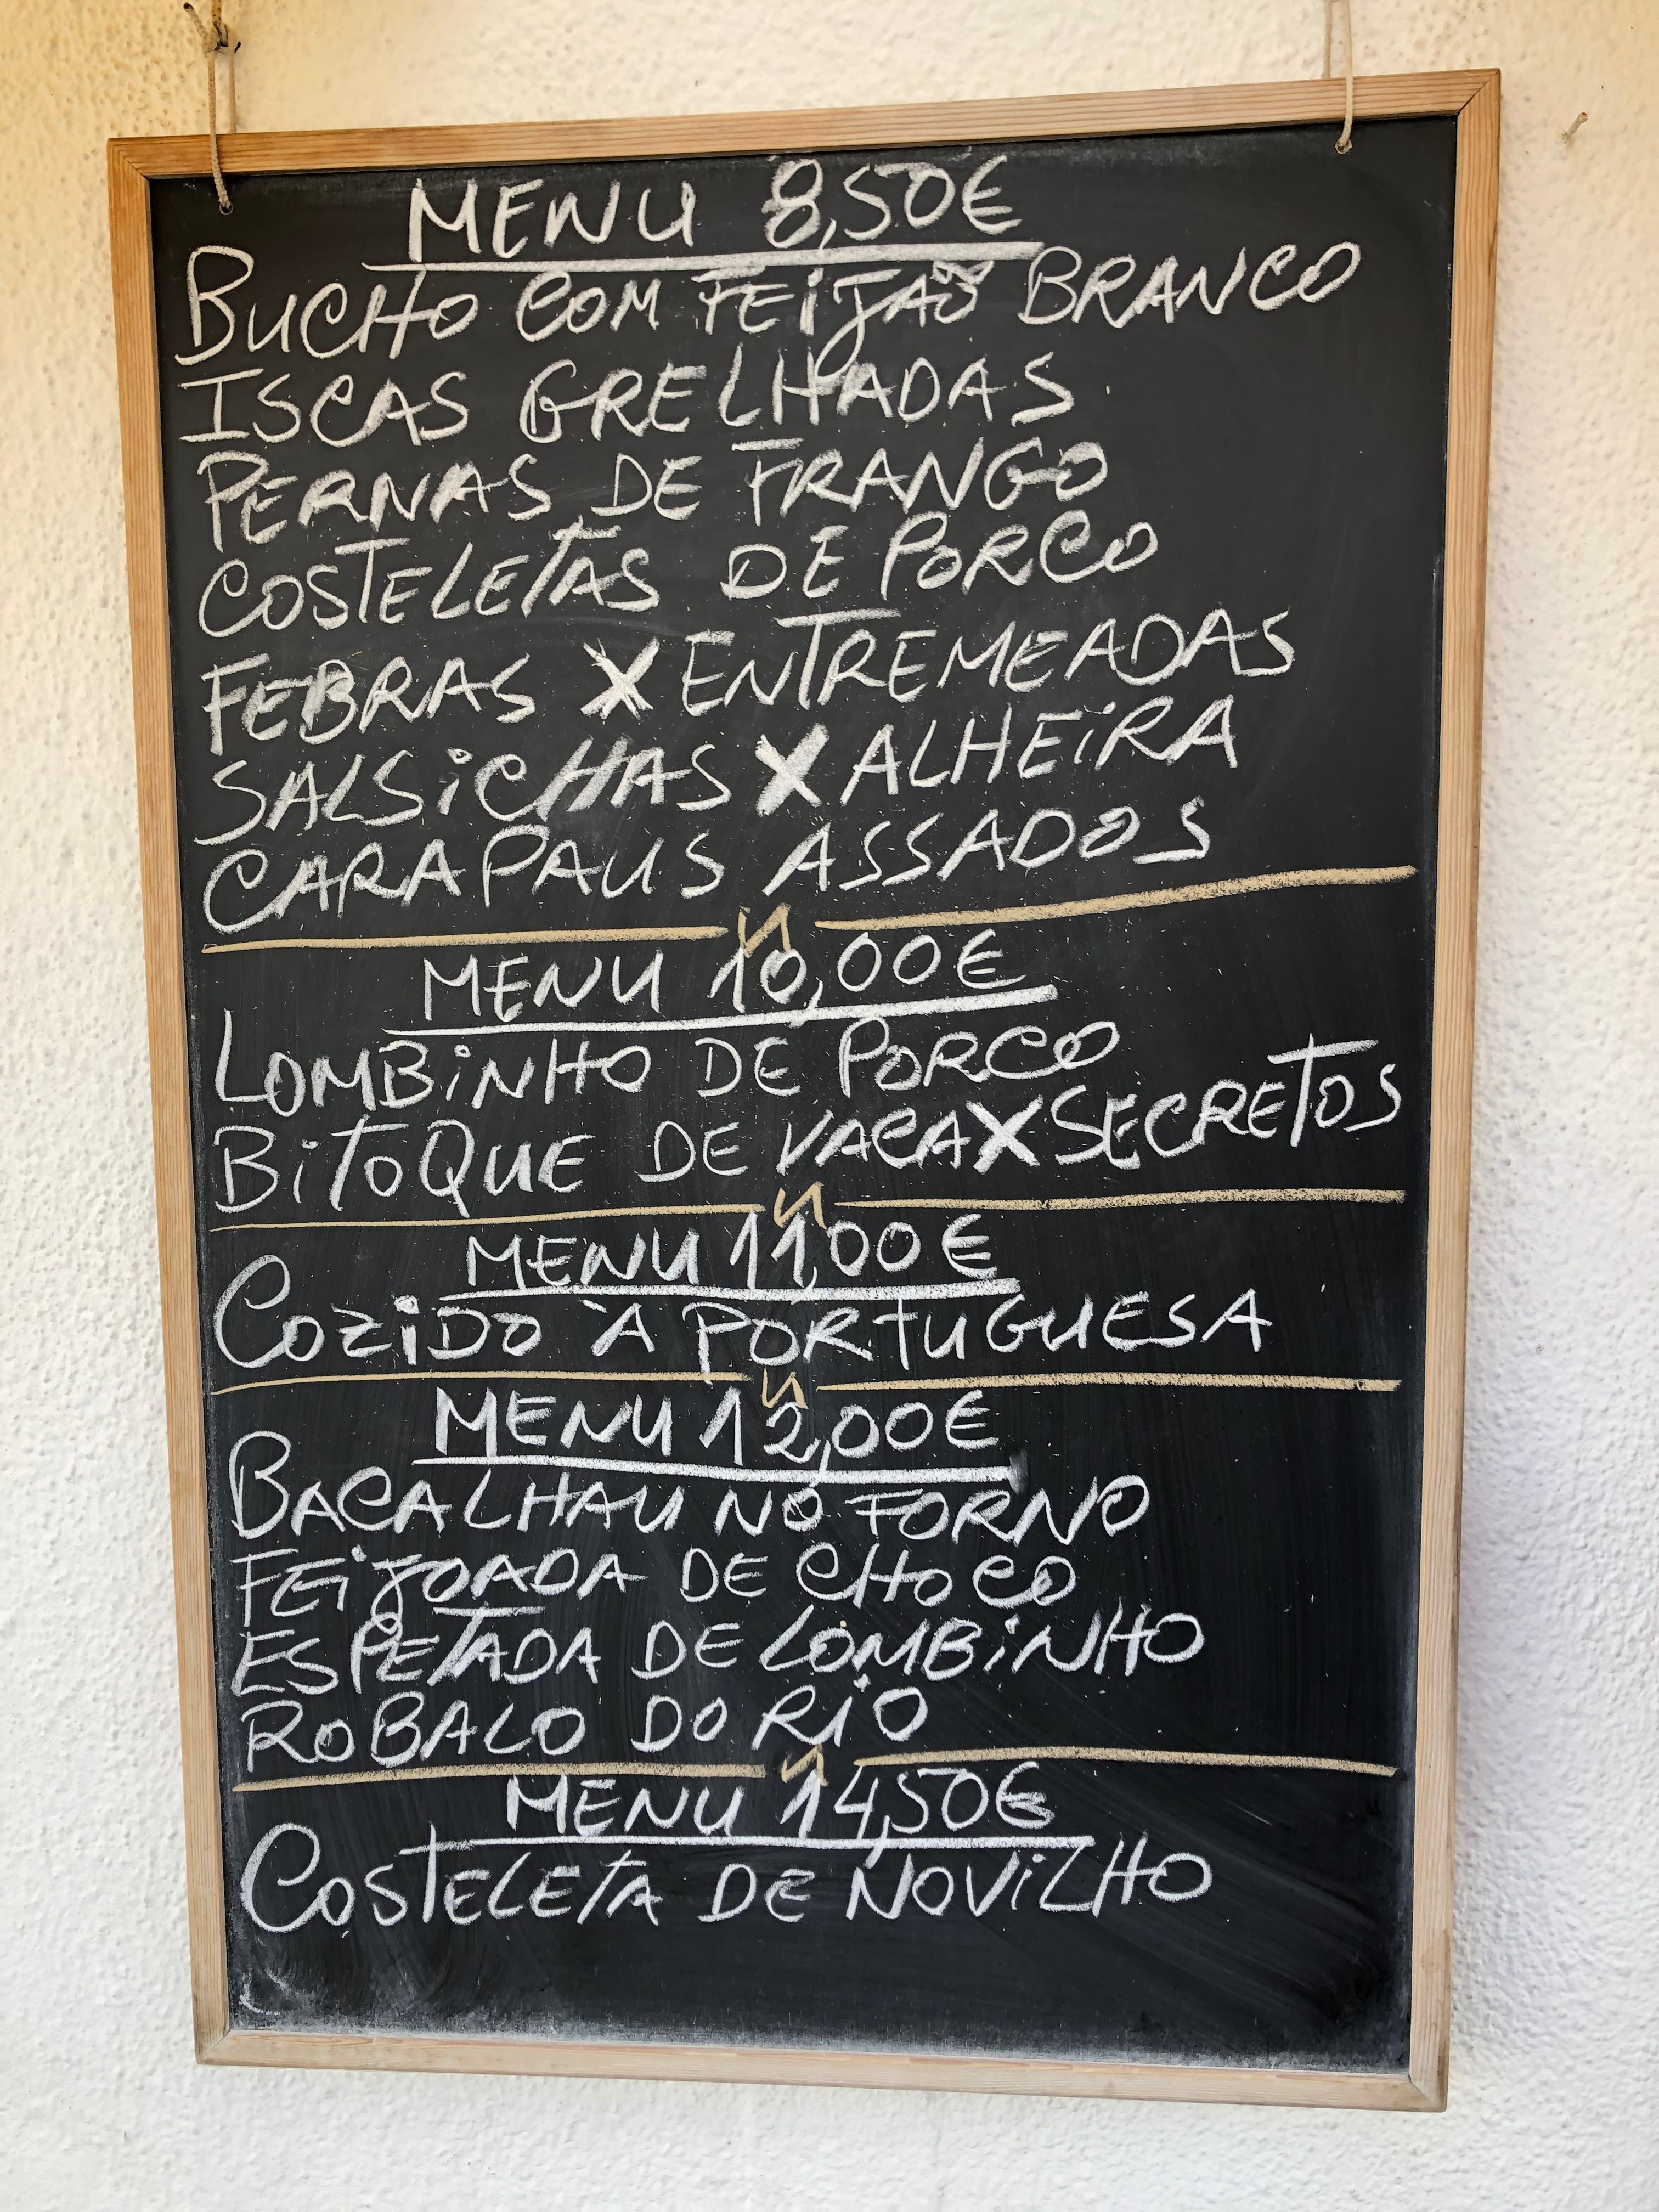 MENU 8,50€
BUCHO COM FEIJÃO BRANCO
ISCAS GRELHADAS
PERNAS DE FRANGO
COSTELETAS DE PORCO
FEBRAS X ENTREMEADAS
SALSICHAS X ALHEIRA
CARAPAUS ASSADOS
MENU 10,00€
LOMBINHO DE PORCO
BITOQUE DE VACA X SECRETOS
MENU 11,00€
COZIDO À PORTUGUESA
MENU 12,00€
BACALHAU NO FORNO
FEIJOADA DE CHOCO
ESPETADA DE LOMBINHO
ROBALO DO RIO
MENU 14,50€
COSTELETA DE NOVILHO